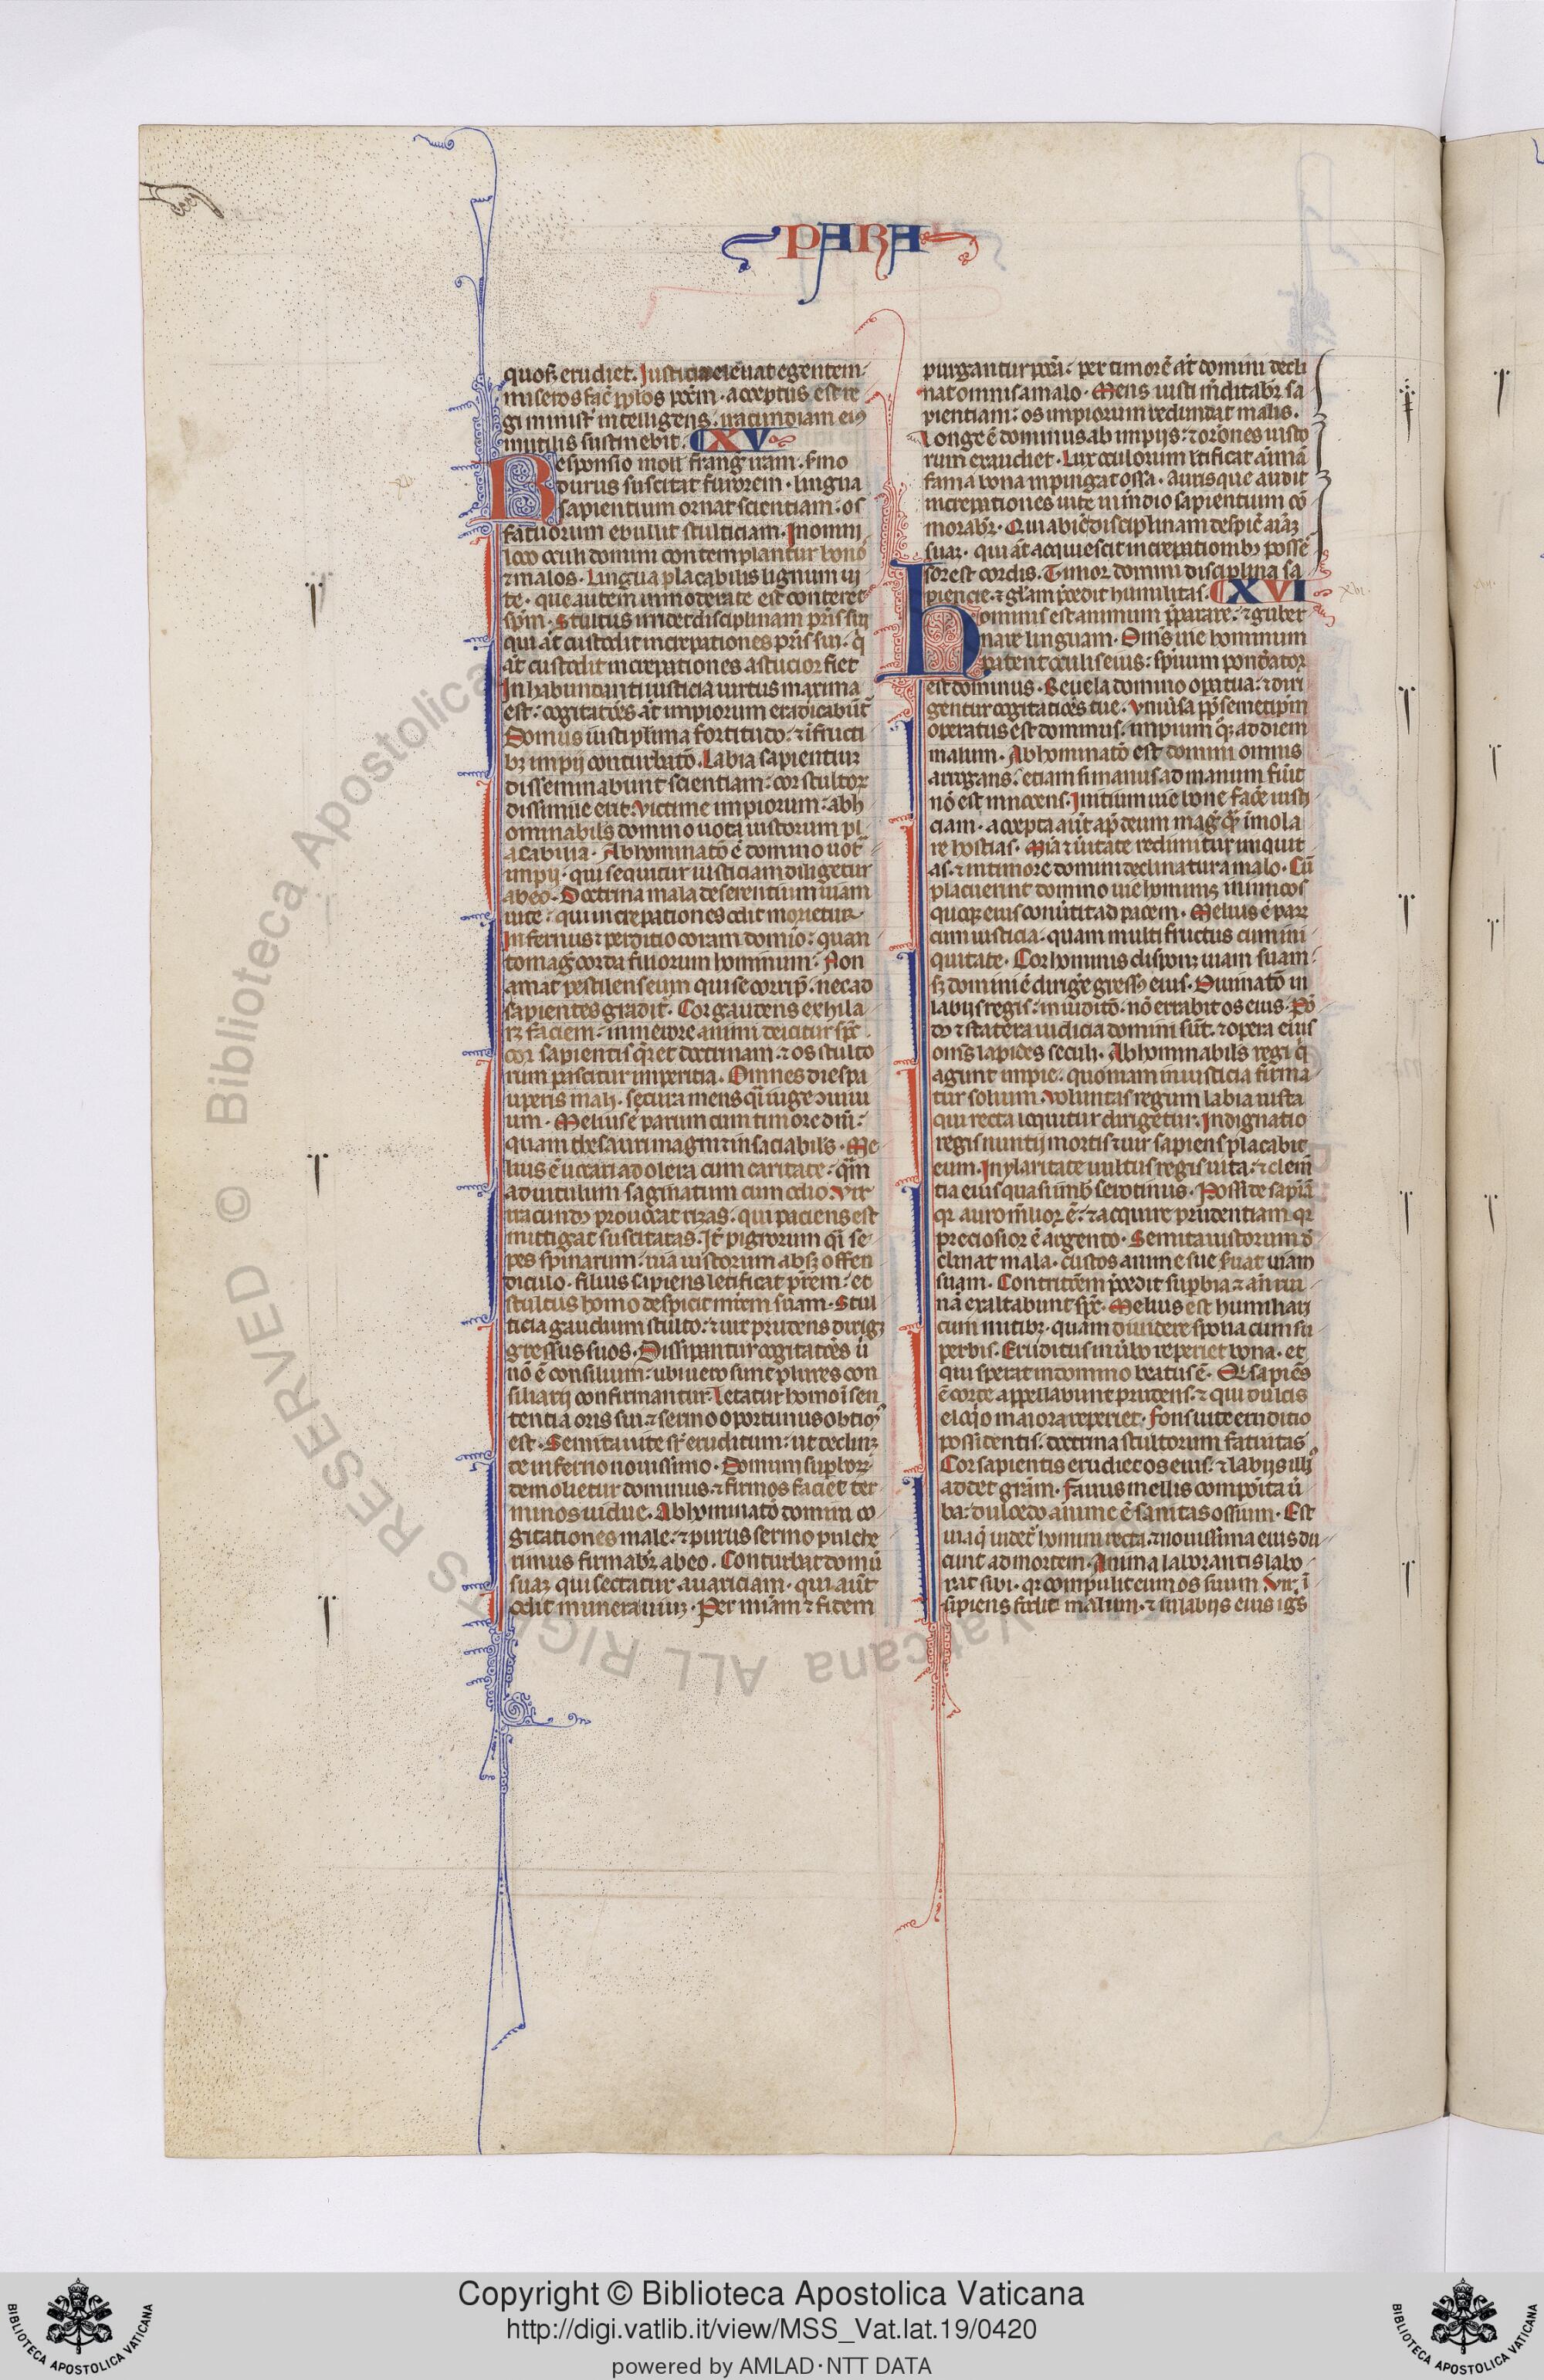 PARA
quosq; erudiet. Iusticia eleuat egentem
miseros fac̄ pp̄los pcc̄m. acceptus est re
gi minist̄ intelligens. iracundiam eiꝰ
inutilis sustinebit. CXV
Responsio moll̄ frangit iram. s̄mo
durus suscitat furorem. lingua
sapientium ornat scientiam: os
fatuorum ebullit stulticiam. In omni
loco oculi domini contemplantur bono
⁊ malos. Lingua placabilis lignum ui
te. que autem inmoderate est conteret
sp̄m. Stultus irridet disciplinam pr̄is sui
qui āt custodit increpationes pr̄is sui. q̄
āt custodit increpationes astucior fiet
In habundanti iusticia uirtus maxima
est: cogitatōes āt impiorum eradicabūt̄
Domus iusti plima fortitudo: ⁊ ī fructi
bꝫ impij conturbatō. Labia sapientium
disseminabunt scientiam: cor stultoꝝ
dissimile erit. Victime impiorum: abh
ominabiles domino uota iustorum pl
acabilia. Abhominatō ē domino uot̄
impij. qui sequitur iusticiam diligetur
ab eo. Doctrina mala deserentium uiam
uite: qui increpationes odit morietur.
Infernus ⁊ perditio coram domīo: quan
to maḡ corda filiorum hominum. Non
amat pestilens eum qui se corrip̄. nec ad
sapientes gradit̄. Cor gaudens exhila
rꝫ faciem: in merore animi deicitur sp̄c
cor sapientis q̄ret doctrinam: ⁊ os stulto
rum pascitur imperitia. Omnes dies pa
uperis mali. secura mens q̄i iuge ↄuiui
um. Melius ē parum cum timore dn̄i:
quam thesauri magni ⁊ īnsaciabiles. Me
lius ē uocari ad olera cum caritate: q̄m
ad uitulum saginatum cum odio. Vir
iracundꝰ prouocat rixas: qui paciens est
mittigat suscitatas. It̄ pigrorum q̄i se
pes spinarum: uia iustorum absqꝫ offen
diculo. filius sapiens letificat pr̄em: et
stultus homo despicit mr̄em suam. Stul
ticia gaudium stulto: ⁊ uir prudens dirigꝫ
gressus suos. Dissipantur cogitatōes ū
nō ē consilium: ubi uero sunt plures con
siliarij confirmantur. Letatur homo ī sen
tentia oris sui: ⁊ sermo oportunus obtīꝰ
est. Semita uite sr̄ eruditum: ut declinꝫ
de inferno nouissimo. Domum suplorꝫ
demolietur dominus: ⁊ firmos faciet ter
minos uidue. Abhominatō domini co
gitationes male: ⁊ purus sermo pulche
rimus firmabꝫ ab eo. Conturbat domū
suaꝫ qui sectatur auariciam. qui aūt
odit munera uiuꝫ. Per mīam ⁊ fidem
purgantur pcc̄a: per timorē āt domini decli
nat omnis a malo. Mens iusti m̄ditabꝫ sa
pientiam: os impiorum redundat malis.
Longe ē dominus ab impijs: ⁊ or̄ones iusto
rum exaudiet. Lux oculorum l̄tificat aīmā
fama bona inpinguat ossa. Auris que audit
increpationes uite in m̄dio sapientium cō
morabꝫ. Qui abic̄ disciplinam despic̄ aīaꝫ
suaꝫ. qui āt acquiescit increpationibꝰ posse
sor est cordis. Timor domini disciplina sa
piencie: ⁊ gl̄am p̄cedit humilitas. CXVI
xvi.
Hominis est animum p̄parare: ⁊ gub̄er
nare linguam. Om̄s uie hominum
patent oculis eius: spirituum pond̄ator
est dominus. Reuela domino opa tua: ⁊ diri
gentur cogitatōes tue. Vniūsa pp̄ semetipm̄
operatus est dominus. impium qꝫ ad diem
malum. Abhominatō est domini omnis
arrogans: etiam si manus ad manum fūit
nō est innocens. Initium uie bone fac̄e iusti
ciam. accepta aūt ap̄ deum maḡ q̄ īmola
re hostias. Mīa ⁊ ūitate redimitur iniquit
as: ⁊ in timore domini declinatur a malo. Cū
placuerint domino uie hominis inimicos
quoqꝫ eius conūtit ad pacem. Melius ē parꝫ
cum iusticia. quam multi fructus cum ini
quitate. Cor hominis disponꝫ uiam suam:
sꝫ domini ē diriḡe gressꝰ eius. Diuinatō in
labijs regis: in iuditō. nō errabit os eius. Pō
dꝰ ⁊ statera iudicia domini sūt. ⁊ opera eius
om̄s lapides seculi. Abhominabiles regi q̄
agunt impie. quoniam in iusticia firma
tur solium. Voluntas regum labia iusta
qui recta loquitur dirigetur. Indignatio
regis nuntij mortis ⁊ uir sapiens placabit
eum. In ylaritate uultus regis uita: ⁊ clem̄
tia eius quasi imb̄ serotinus. Posside sapīaꝫ
qꝛ auro m̄lior ē: ⁊ acquire prudentiam qꝛ
preciosior ē argento. Semita iustorum d̄
clinat mala. custos anime sue s̄uat uiam
suam. Contritōem p̄cedit supbia ⁊ an̄ rui
nā exaltabunt sp̄c. Melius est humiliari
cum mitibꝫ. quam diuidere spolia cum su
perbis. Eruditus in ūbo reperiet bona. et
qui sperat in domino beatus ē. Qui sapiēs
ē corde appellabunt prudens: ⁊ qui dulcis
eloq̄o maiora reperiet. Fons uite eruditio
possidentis. doctrina stultorum fatuitas
Cor sapientis erudiet os eius: ⁊ labijs illiꝰ
addet grām. Fauus mellis compoita ū
ba: dulcedo anime ē sanitas ossium. Est
uia q̄ uidet̄ homini recta. ⁊ nouissima eius du
cunt ad mortem. Anima laborantis labo
rat sibi. qꝛ compulit eum os suum. Vir ī
sipiens fodit malum. ⁊ in labijs eius igs
Copyright © Biblioteca Apostolica Vaticana
http://digi.vatlib.it/view/MSS_Vat.lat.19/0420
powered by AMLAD·NTT DATA
BIBLIOTECA APOSTOLICA VATICANA
BIBLIOTECA APOSTOLICA VATICANA